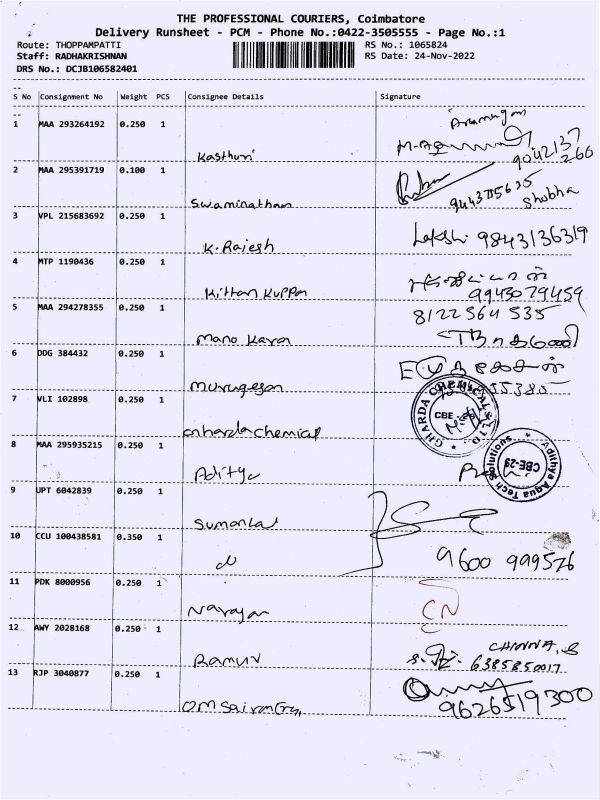 THE PROFESSIONAL COURIERS, Coimbatore
Delivery Runsheet - PCM - Phone No.:0422-3505555 - Page No.:1
Route: THOPPAMPATTI RS No.: 1065824
Staff: RADHAKRISHNAN RS Date: 24-Nov-2022
DRS No.: DCJB106582401
S No Consignment No Weight PCS Consignee Details Signature
1 MAA 293264192 0.250 1
Kasthuri 9042137
266
2 MAA 295391719 0.100 1
Swaminathan Shobha
3 VPL 215683692 0.250 1
K. Rajesh 9843136319
4 MTP 1190436 0.250 1
Kittan Kuppa 9943079459
5 MAA 294278355 0.250 1 8122564 535
Mano Karan
6 DDG 384432 0.250 1
Murugesan
7 VLI 102898 0.250 1
GHARDA CHEMICALS LTD.
CBE
Gharda chemical
8 MAA 295935215 0.250 1
Adithya Aqua Tech Solutions
CBE-29
Aditya
9 UPT 6042839 0.250 1
Sumanlal
10 CCU 100438581 0.350 1
9600 999526
11 PDK 8000956 0.250 1
Narayan CN
12 AWY 2028168 0.250 1
CHINNA.S
Ramuv 6385850017
13 RJP 3040877 0.250 1
9626519300